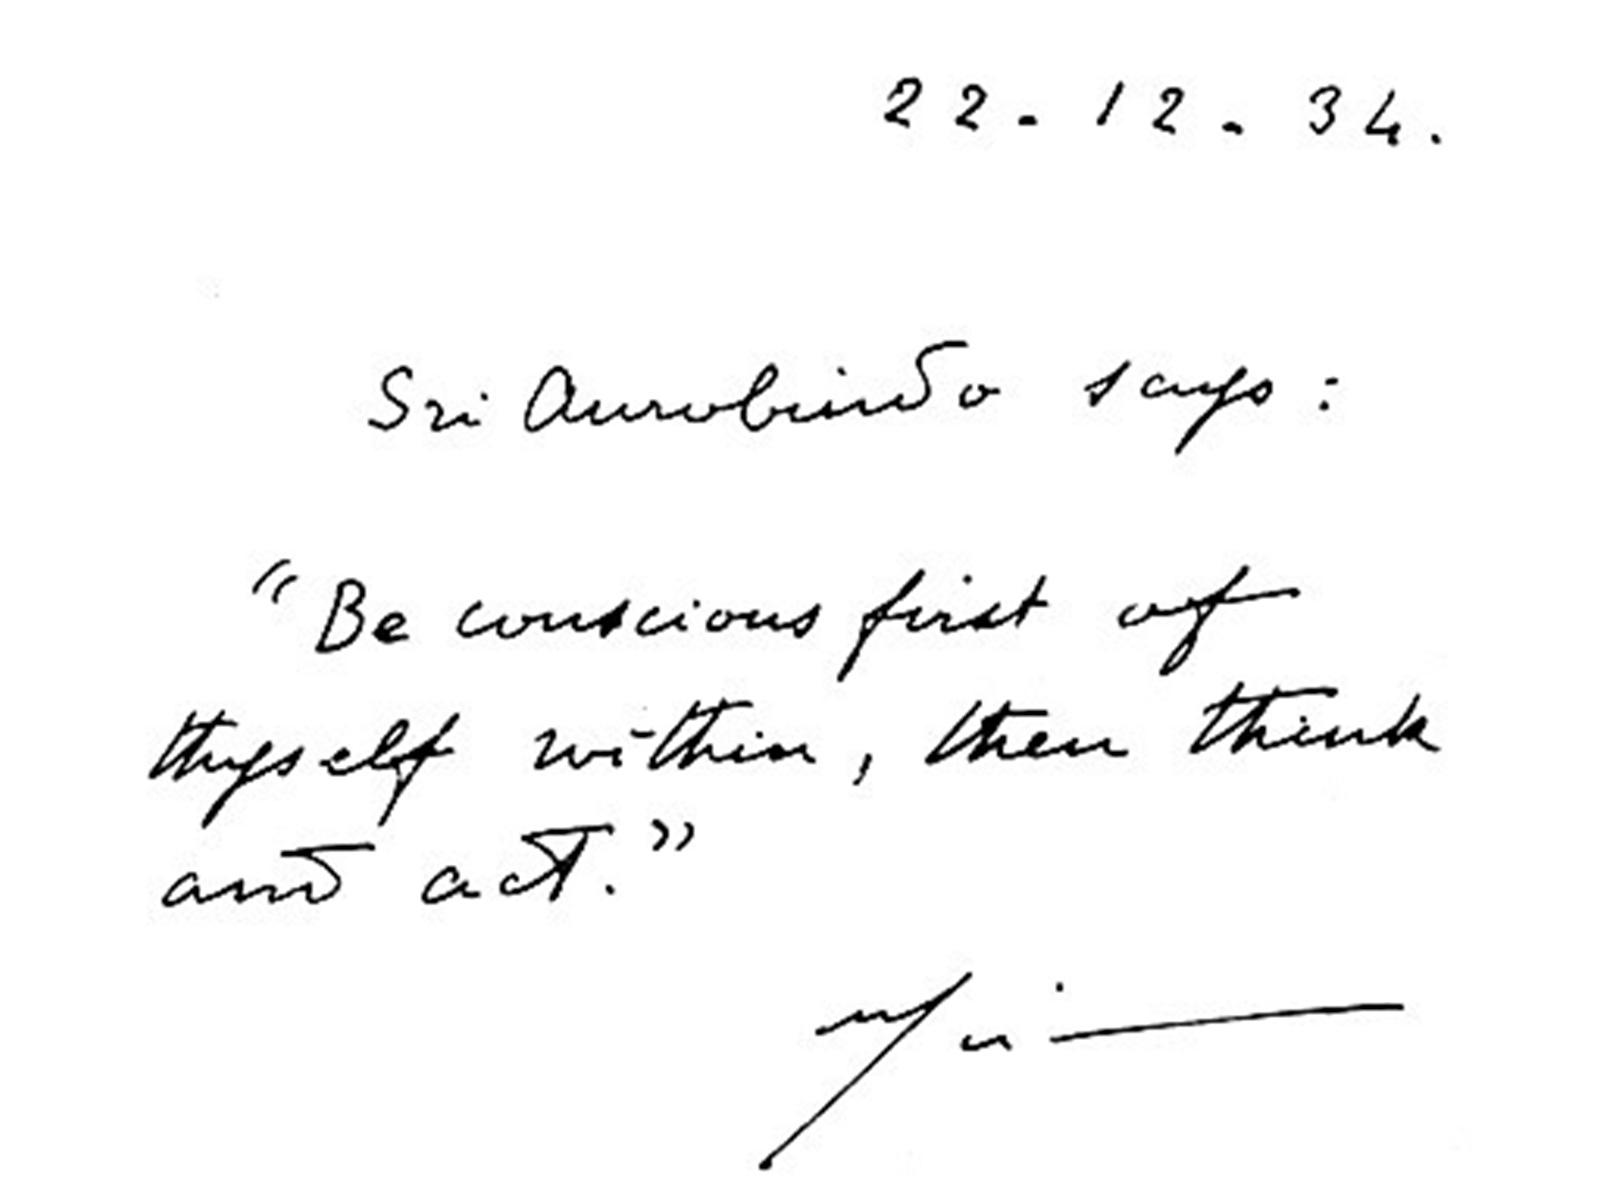 22-12-34.
Sri Aurobindo says:
"Be conscious first of
thyself within, then think
and act."